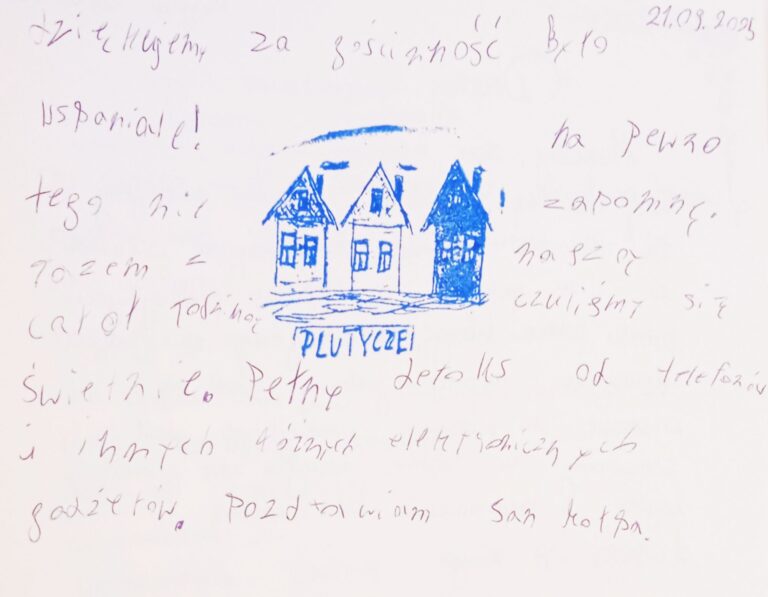 21.09.2025
Dziękujemy za gościnność Było
wspaniale! na pewno
tego nie zapomnę.
razem z naszą
całą rodziną czuliśmy się
świetnie. Pełny detoks od telefonów
i innych różnych elektronicznych
gadżetów. Pozdrawiam San
PLUTYCZE